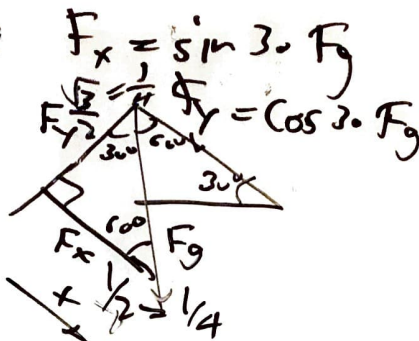 Fx = sin 30 Fg
Fy √3/2 = 1/4 Fy = Cos 30 Fg
30° 60°
30°
60°
Fx Fg
x 1/2 = 1/4